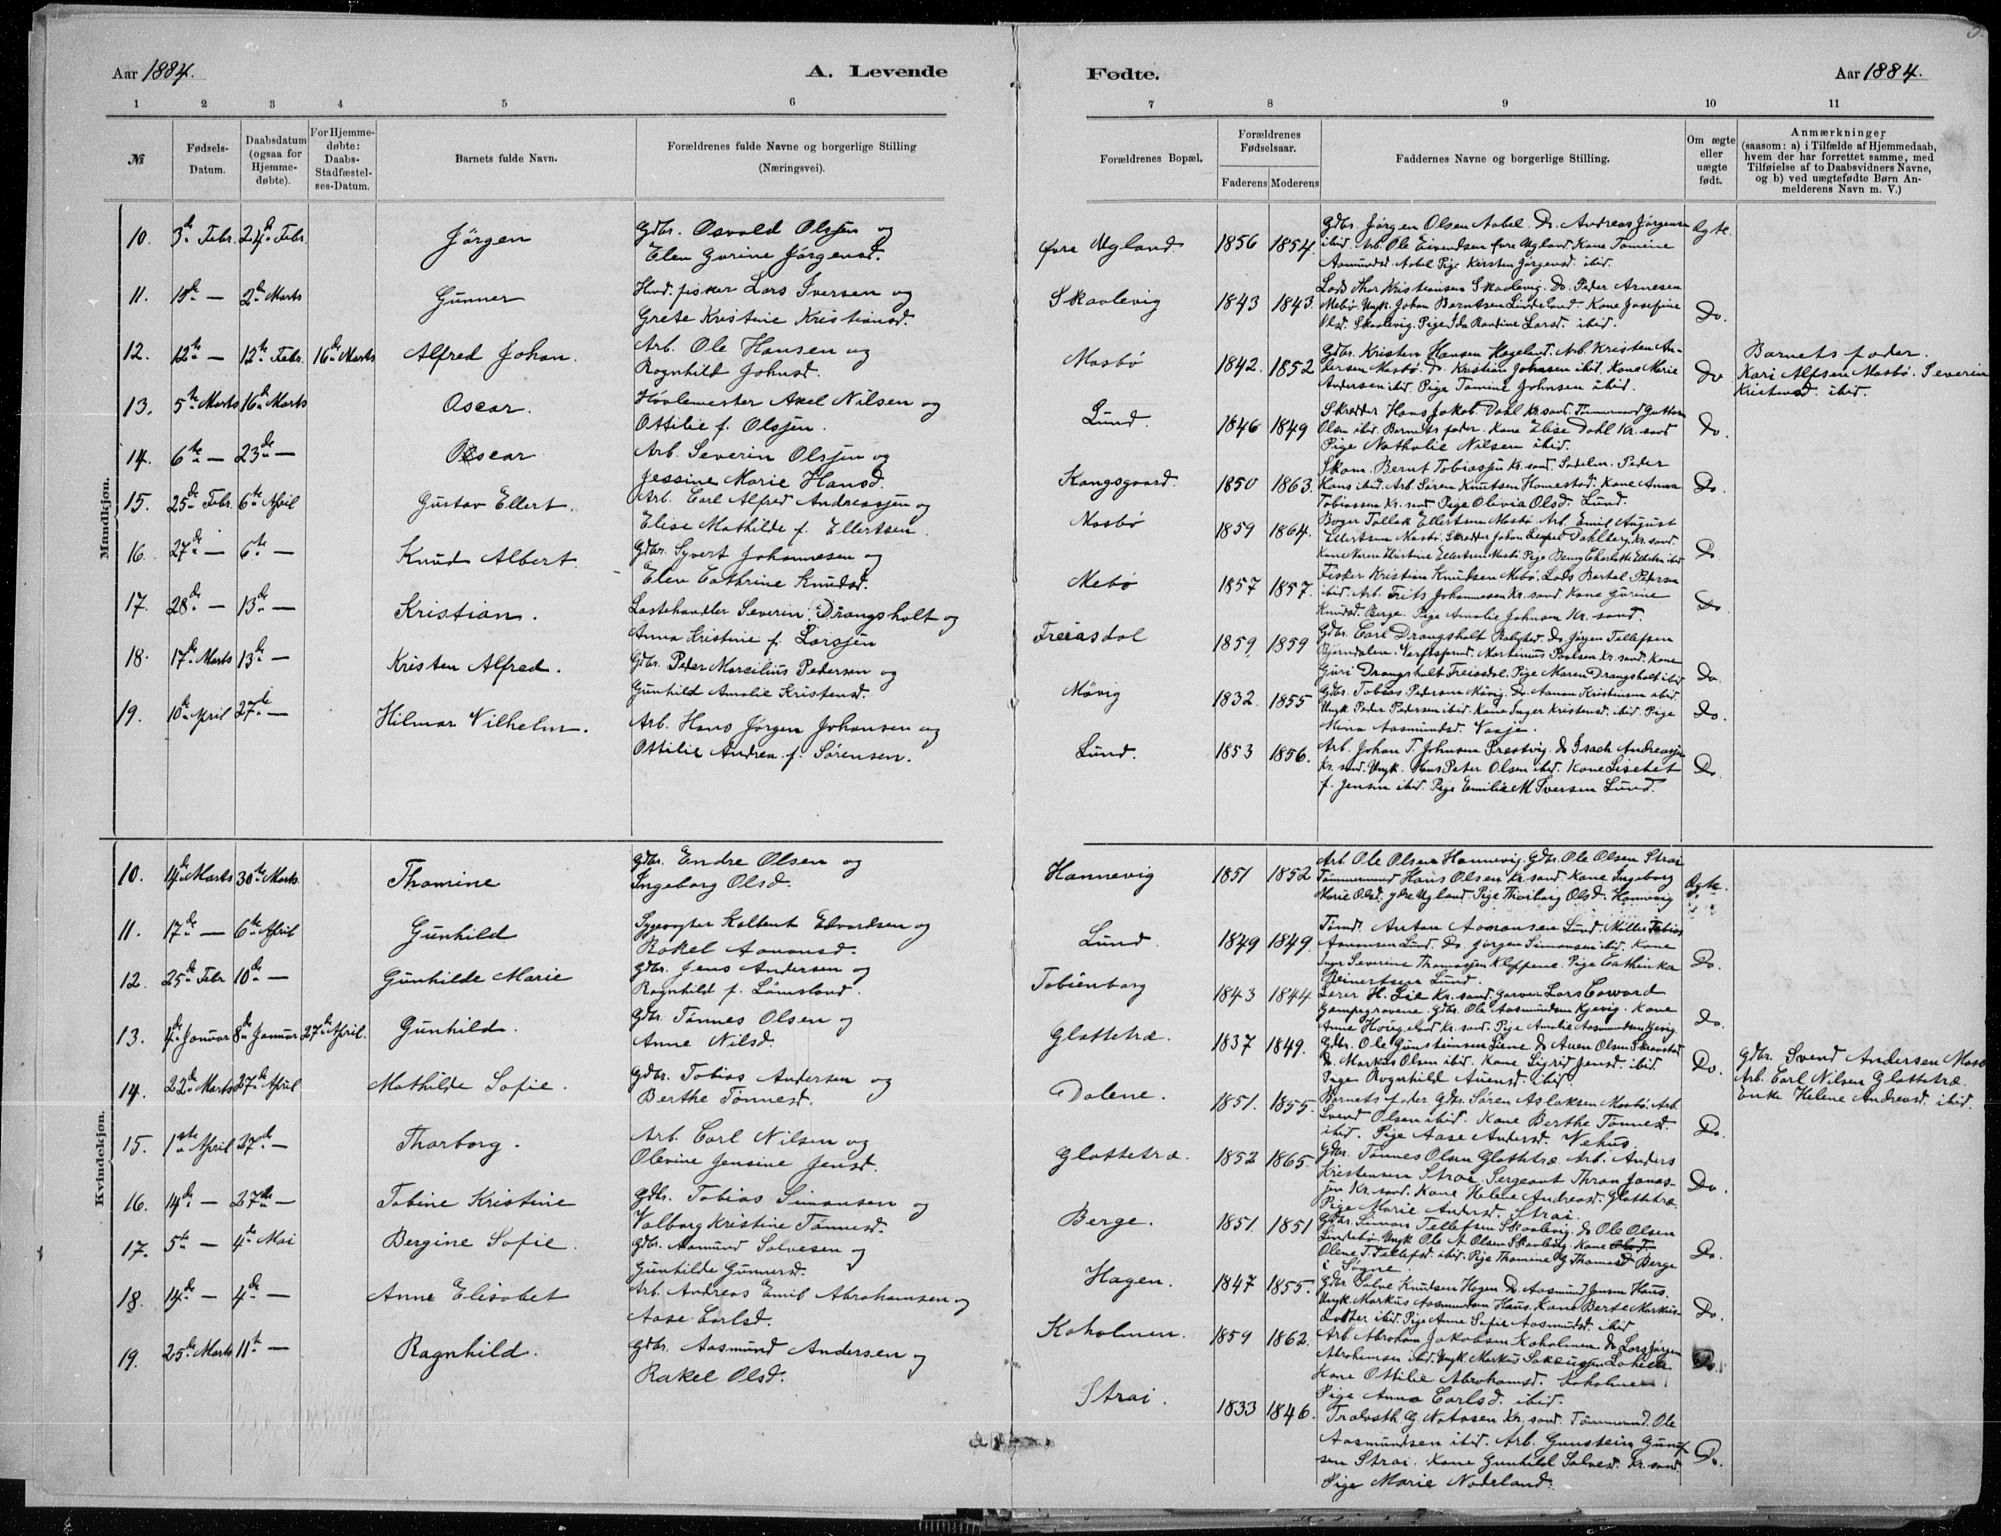 Aar 1884.
A. Levende
1 2 3 4 5 6
№
Fødsels-Datum.
Daabsdatum (ogsaa for Hjemmedøbte).
For Hjemmedøbte: Daabs-Stadfæstelses-Datum.
Barnets fulde Navn.
Forældrenes fulde Navne og borgerlige Stilling
(Næringsvei).
Mandkjøn.
10. 3de Febr. 24de Febr. Jørgen Gdbr. Osvald Olsen og
Elen Gurine Jørgensd.
11. — 2den Marts Gunner fisker Lars Iversen og
Grete Kristine Kristiansd.
12. 12te — 12te Febr. 16de Marts Alfred Johan. Arb. Ole Hansen og
Ragnhild Johnsd.
13. 5te Marts 16de Marts Oscar. Akel Nilsen og
Ottilie f. Olsen.
14. 6te — 23de — Oscar Arb. Severin Olsen og
Jessine Marie Hansd.
15. 25de Febr. 6te April Gustav Ellert. Arb. Carl Alfred Andreassen og
Elise Mathilde f. Ellertsen.
16. 27de — 6te — Knud Albert Gdbr. Syvert Johannesen og
Elen Cathrine Knudsd.
17. 28de — 13de — Kristian. Lastehandler Severin Drangsholt og
Anna Kristine f. Larsen
18. 17de Marts 13de — Kristen Alfred. Gdbr. Peder Marcelius Pedersen og
Gunhild Amalie Kristensd.
19. 10de April 27de — Hilmar Vilhelm. Arb. Hans Jørgen Johansen og
Ottilie Andrea f. Sørensen.
Kvindekjøn.
10. 4de Marts 30te Marts Thomine Gdbr. Endre Olsen og
Ingeborg Olsd.
11. 17de — 6te April Gunhild Sygevogter Kolbent Edvardsen og
Rakel Aanonsd.
12. 25de Febr. 10de — Gunhilde Marie Gdbr. Jens Andersen og
Ragnhild f. Lømsland.
13. 4de Januar 8de Januar 27de April. Gunhild. Gdbr. Tønnes Olsen og
Anne Nilsd.
14. 22de Marts 27de April Mathilde Sofie. Gdbr. Tobias Andersen og
Berthe Tønnesd.
15. 1ste April 27de — Thorborg. Arb. Carl Nilsen og
Olevine Jensine Jensd.
16. 14de — 27de — Tobine Kristine Gdbr. Tobias Simonsen og
Valborg Kristine Tønnesd.
17. 5te — 4de Mai Bergine Sofie. Gdbr. Asmund Salvesen og
Gunhilde Gunnersd.
18. 14de — 4de — Anne Elisabet Arb. Andreas Emil Abrahamsen og
Aase Carlsd.
19. 25de Marts 11te — Ragnhild. Gdbr. Aasmund Andersen og
Rakel Olsd.
Fødte.
Aar 1884.
7 8 9 10 11
Forældrenes Bopæl.
Forældrenes Fødselsaar.
Faderens Moderens
Faddernes Navne og borgerlige Stilling.
Om ægte eller uægte født.
Anmærkninger
(saasom: a) i Tilfælde af Hjemmedaab,
hvem der har forrettet samme, med
Tilføielse af to Daabsvidners Navne,
og b) ved uægtefødte Børn Anmelderens Navn m. V.)
øvre Ugland 1856 1854. Gdbr. Jørgen Olsen Aabel Do. Andreas Jørgensen Ægte.
ibid. Arb. Ole Eivendsen øvre Ugland Kone Tomine
Aasmundsd. Aabel Pige Kirsten Jørgensd. ibid.
Skaalevig 1843 1843. Lods Thor Kristiansen Skaalevig. Do. Peder Arnesen Do.
Mebø Ungk. Johan Berntsen Kone Josefine
Olsd. Skaalevig. Pige Ida Larsd. ibid.
Mosbø 1842. 1852 Gdbr. Kristen Hansen Hageland. Arb. Kristen An- Do
dersen Mosbø. Do. Kristian Johnsen ibid. Kone Marie
Andersen ibid. Pige Tomine Johnsen ibid.
Barnets fader.
Kari Alfsen Mosbø. Severin
Kristensd. ibid.
Lund. 1846 1849 Skrædder Hans Jakob Dahl Kr.sand. Do.
Olsen ibid Barnets fader. Kone Elise Dahl Kr.sand
Pige Nathalie Nilsen ibid.
Kongsgaard. 1850 1863. Skom. Bernt Tobiassen Kr.sand. Peder Do.
Hans ibid. Arb. Søren Knutsen Hamrestad. Kone Anna
Tobiassen Kr.sand. Pige Olivia Olsd. Lund.
Mosbø 1859 1864. Tollak Ellertsen Mosbø. Arb. Emil August Do
Ellertsen Mosbø. Skrædder Johan Dahlberg Kr.sand.
Kone Maren Kristine Ellertsen Mosbø. Pige
Mebø 1857 1857. Fisker Kristian Knudsen Mebø. Lods Bertel Petersen Do
ibid. Arb. Frits Johannesen Kr.sand Kone Gurine
Knudsd. Berge. Pige Amalie Johnsen Kr.sand.
Freiasdal 1859 1859 Gdbr. Carl Drangsholt Do. Jørgen Tellefsen Do.
Bjørndalen. Martinius Paulsen Kr.sand. Kone
Guri Drangsholt Freiasdal. Pige Maren Drangsholt ibid
Møvig 1832. 1855 Gdbr. Tobias Pedersen Møvig. Do. Aanon Kristensen ibid. Do.
Ungk Peder Pedersen ibid. Kone Inger Kristensd. ibid. Pige
Mina Aasmundsd. Vaaje.
Lund. 1853 1856. Arb. Johan T. Johnsen Prestvig. Do Isach Andreassen Do.
Kr.sand. Ungk. Hans Peter Olsen ibid. Kone Lisebet
f. Jensen ibid. Pige Emilie M Iversen Lund.
Hannevig 1851 1852 Arb. Ole Olsen Hannevig. Gdbr. Ole Olsen Strai Ægte.
Tømmermand Hans Olsen Kr.sand. Kone Ingeborg
Marie Olsd. ydre Ugland. Pige Thorborg Olsd. Hannevig
Lund. 1849 1849. Tømd. Anton Aanonsen Lund. Møller Tobias Do.
Aanonsen Lund. Do. Jørgen Simonsen ibid. Kone
Severine Thomassen Kleppene. Pige Cathinka
Reinertsen Lund.
Tobienborg 1843 1844 Lærer H. Lie Kr.sand. Garver Lars Coward Do.
Gdbr. Ole Aasmundsen Kjevig. Kone
Anne Kr.sand. Pige Amalie Aasmundsen Kjevig.
Glattetræ 1837 1849. Gdbr. Ole Gunsteinsen Liene Do Auen Olsen Do.
Do Markus Olsen ibid. Kone Sigrid Jensd. ibid.
Pige Ragnhild Auensd. ibid.
Gdbr. Svend Andersen
Arb. Carl Nilsen Glattetræ.
Enke Helene Andreasd. ibid.
Dalene. 1851. 1855. Barnets fader Gdbr. Søren Aslaksen Mosbø. Arb. Do.
Svend Olsen ibid. Kone Berthe Tønnesd.
ibid. Pige Aase Andersd. Vehus.
Glattetræ. 1852 1865. Gdbr. Tønnes Olsen Glattetræ Arb. Anders Do.
Kristensen Strai. Sergeant Thron Jonas-
sen Kr.sand. Kone Helene Andreasd. Glattetræ.
Pige Marie Andersd. Strai.
Berge. 1851. 1851 Gdbr. Simon Tellefsen Skaalevig. Do Ole Olsen Do.
Ungk Ole A. Olsen Skaalevig. Kone
Olene T. Tellefsd. ibid. Pige Thomine G Thomasd Berge
i Søgne.
Hagen. 1847 1855. Gdbr Salve Knudsen Hagen Do. Aasmund Jensen Haus. Do.
Ungk. Markus Aasmundsen Haus. Kone Berte Markus-
datter ibid. Pige Anne Sofie Aasmundsd. ibid
Koholmen. 1859 1862. Arb. Abraham Jakobsen Koholmen Do Lars Jørgen Do.
Abrahamsen ibid. Ungk Markus
Kone Ottilie Abrahamsd. Koholmen.
Pige Anna Carlsd. ibid.
Strai. 1833 1846. G Natasen Kr.sand. Tømmermd. Ole Do.
Aasmundsen ibid. Arb. Gunstein Gun
sen Strai. Kone Gunhild Salvesd. Kr.sand.
Pige Marie Nodeland.